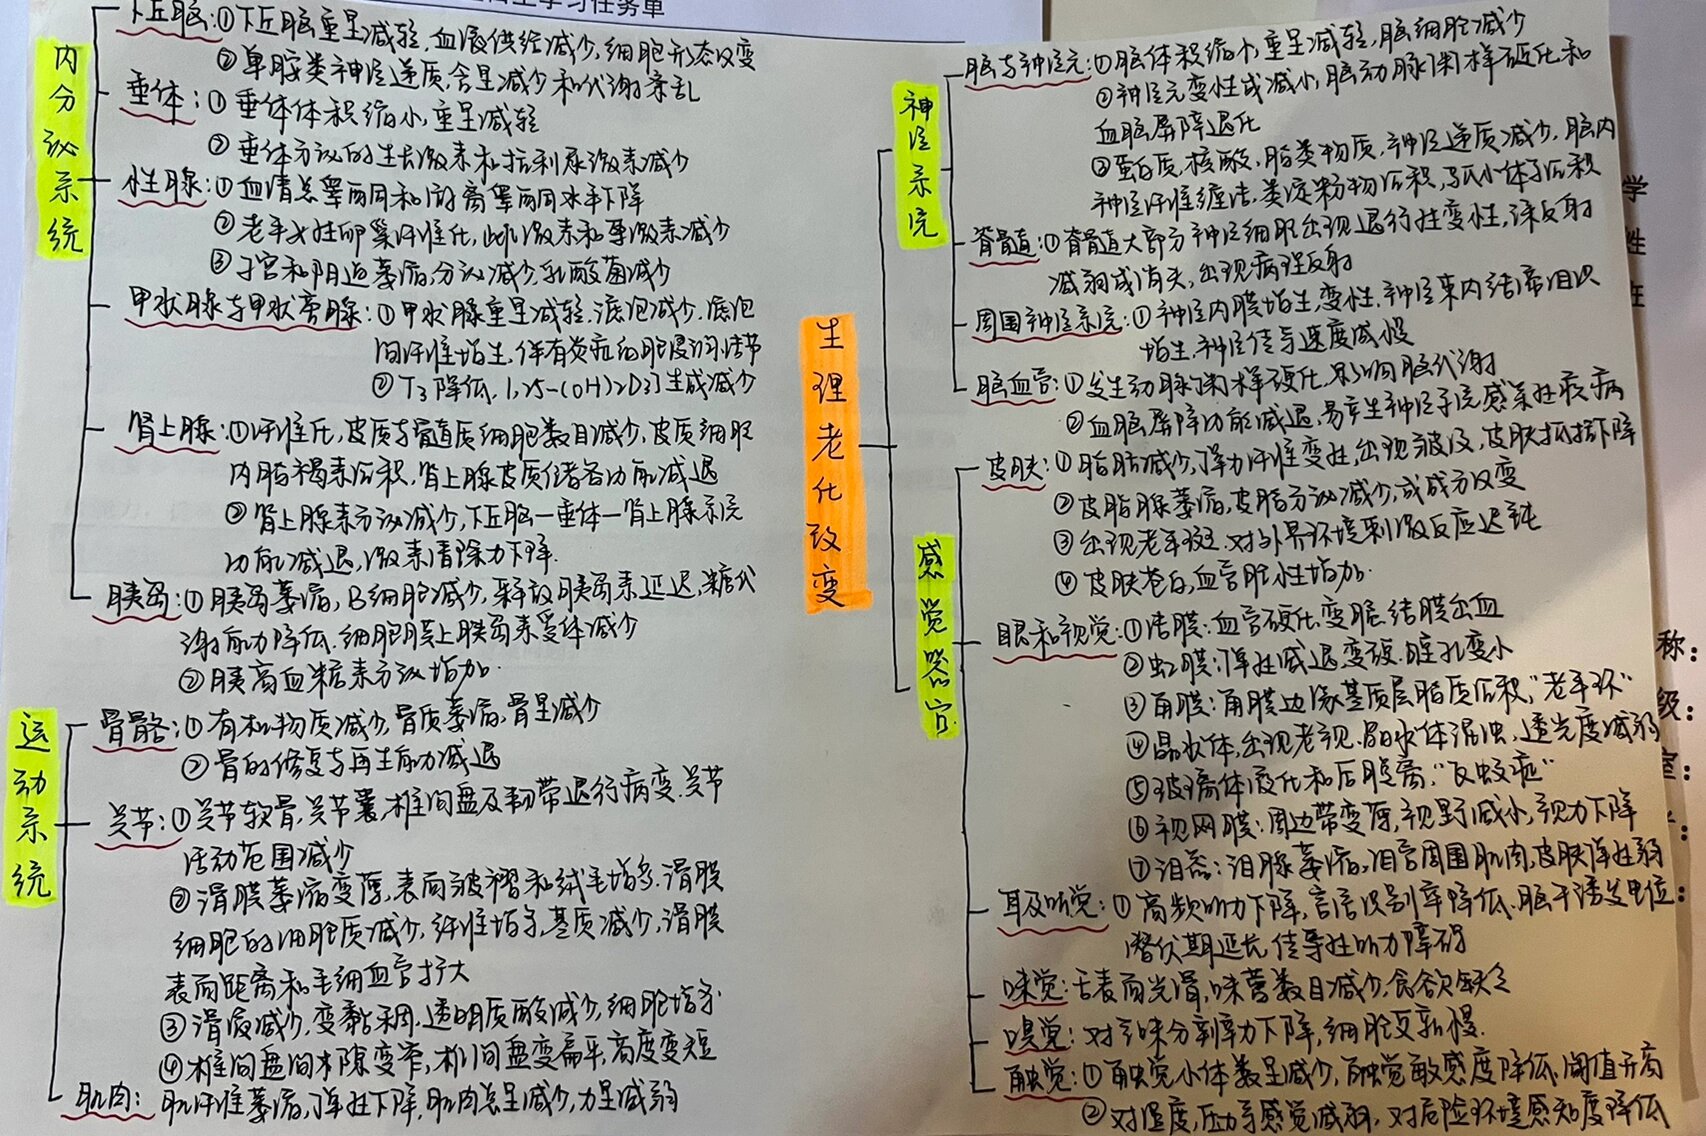 学习任务单
内分泌系统
下丘脑:①下丘脑重量减轻,血液供给减少,细胞形态改变
②单胺类神经递质,含量减少和代谢紊乱
垂体:①垂体体积缩小,重量减轻
②垂体分泌的生长激素和抗利尿激素减少
性腺:①血清总睾酮和游离睾酮水平下降
②老年女性卵巢纤维化,雌激素和孕激素减少
③子宫和阴道萎缩,分泌减少,乳酸菌减少
甲状腺与甲状旁腺:①甲状腺重量减轻.滤泡减少.滤泡
间纤维增生,伴有炎症细胞浸润,结节
②T3降低,1,25-(OH)2D3]生成减少
肾上腺:①纤维化,皮质与髓质细胞数目减少,皮质细胞
内脂褐素沉积,肾上腺皮质储备功能减退
②肾上腺素分泌减少,下丘脑一垂体一肾上腺系统
功能减退,激素清除力下降.
胰岛:①胰岛萎缩,B细胞减少,释放胰岛素延迟,糖代
谢能力降低.细胞膜上胰岛素受体减少
②胰高血糖素分泌增加.
运动系统
骨骼:①有机物质减少,骨质萎缩,骨量减少
②骨的修复与再生能力减退
关节:①关节软骨,关节囊,椎间盘及韧带退行病变.关节
活动范围减少
②滑膜萎缩变薄,表面皱褶和绒毛增多.滑膜
细胞的细胞质减少,纤维增多,基质减少,滑膜
表面距离和毛细血管扩大
③滑液减少,变黏稠.透明质酸减少,细胞增多
④椎间盘间隙变窄,椎间盘变扁平,高度变短
肌肉:肌纤维萎缩,弹性下降,肌肉总量减少,力量减弱
生理老化改变
神经系统
脑与神经元:①脑体积缩小,重量减轻,脑细胞减少
②神经元变性或减小,脑动脉粥样硬化和
血脑屏障退化
③蛋白质,核酸,脂类物质,神经递质减少,脑内
神经纤维缠结,类淀粉物沉积,马氏小体沉积
脊髓:①脊髓大部分神经细胞出现退行性变性,深反射
减弱或消失,出现病理反射
周围神经系统:①神经内膜增生,变性.神经束内结缔组织
增生,神经传导速度减慢
脑血管:①发生动脉粥样硬化,影响脑代谢
②血脑屏障功能减退,易产生神经系统感染性疾病
感觉器官
皮肤:①脂肪减少,弹力纤维变性,出现皱纹,皮肤抵抗下降
②皮脂腺萎缩,皮脂分泌减少,或成分改变
③出现老年斑.对外界环境刺激反应迟钝
④皮肤苍白,血管脆性增加.
眼和视觉:①结膜:血管硬化,变脆.结膜出血
②虹膜:弹性减退,变硬.瞳孔变小
③角膜:角膜边缘基质层脂质沉积,"老年环"
④晶状体,出现老视.晶状体混浊,透光度减弱
⑤玻璃体液化和后脱离,"飞蚊症"
⑥视网膜:周边带变薄,视野减小,视力下降
⑦泪器:泪腺萎缩,泪管周围肌肉,皮肤弹性弱
耳及听觉:①高频听力下降,言语识别率降低.脑干诱发电位
潜伏期延长,传导性听力障碍
味觉:舌表面光滑,味蕾数目减少,食欲缺乏
嗅觉:对气味分辨力下降,细胞更新慢.
触觉:①触觉小体数量减少,触觉敏感度降低.阈值升高
②对温度,压力等感觉减弱,对危险环境感知度降低
学
性
在
称:
级:
室: